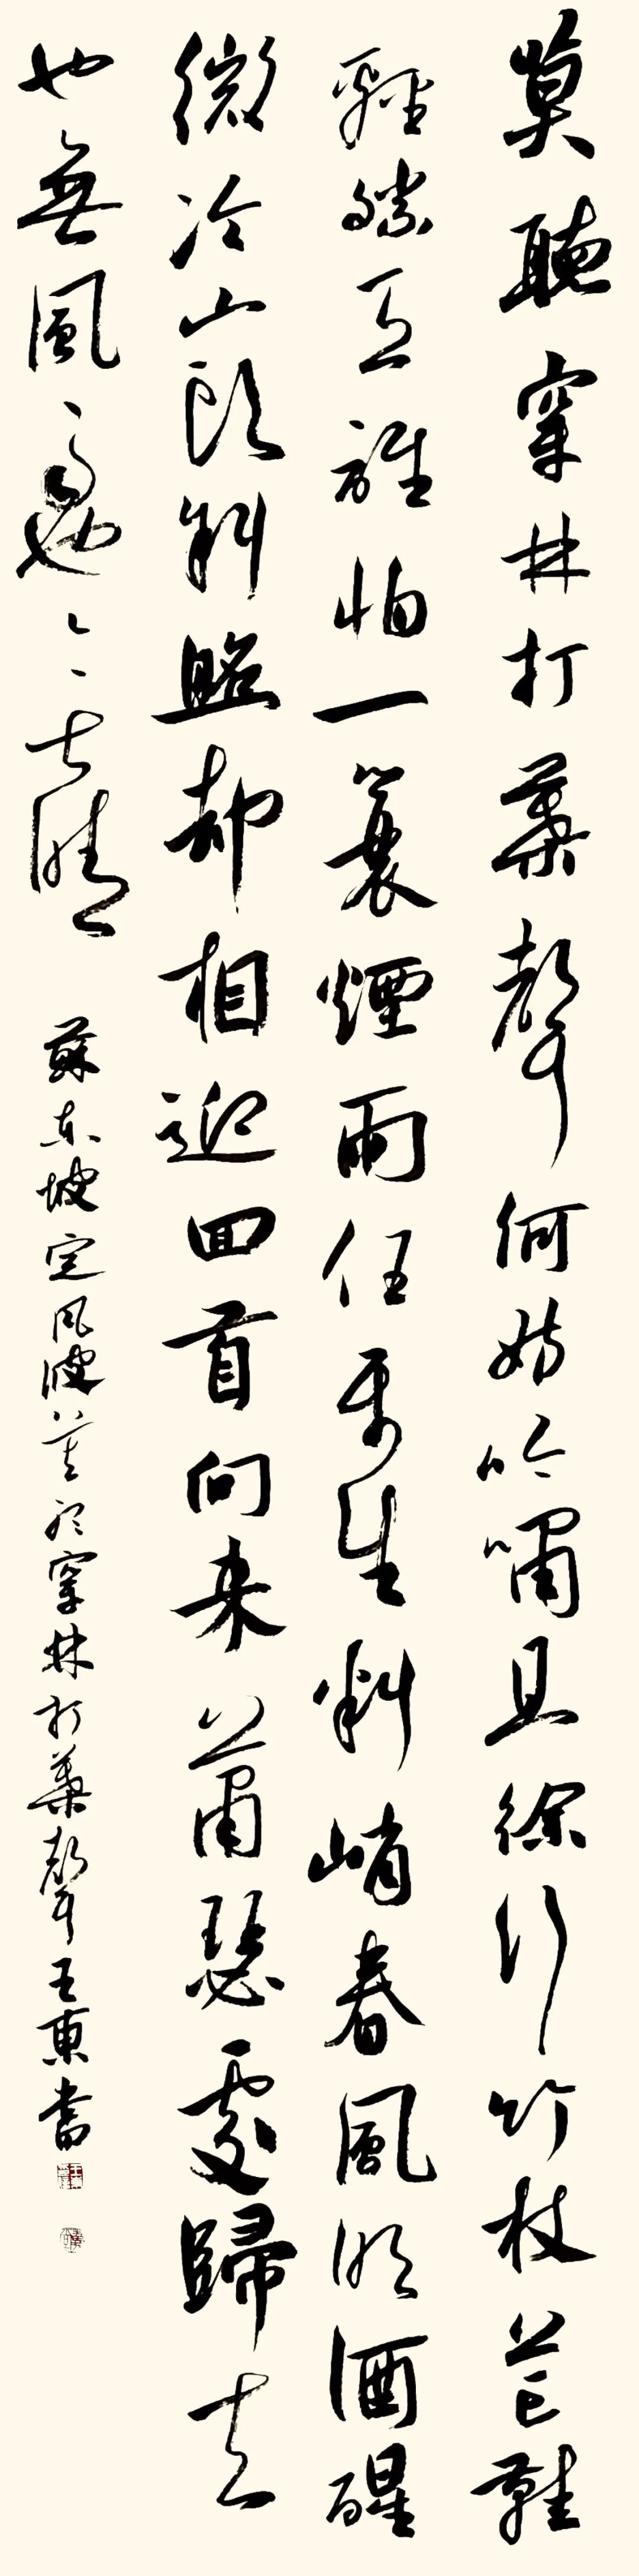 莫聽穿林打葉聲何妨吟嘯且徐行竹杖芒鞋
輕勝馬誰怕一蓑煙雨任平生料峭春風吹酒醒
微冷山頭斜照却相迎回首向来蕭瑟處歸去
也無風雨也無晴
蘇東坡定風波莫聽穿林打葉聲王東書